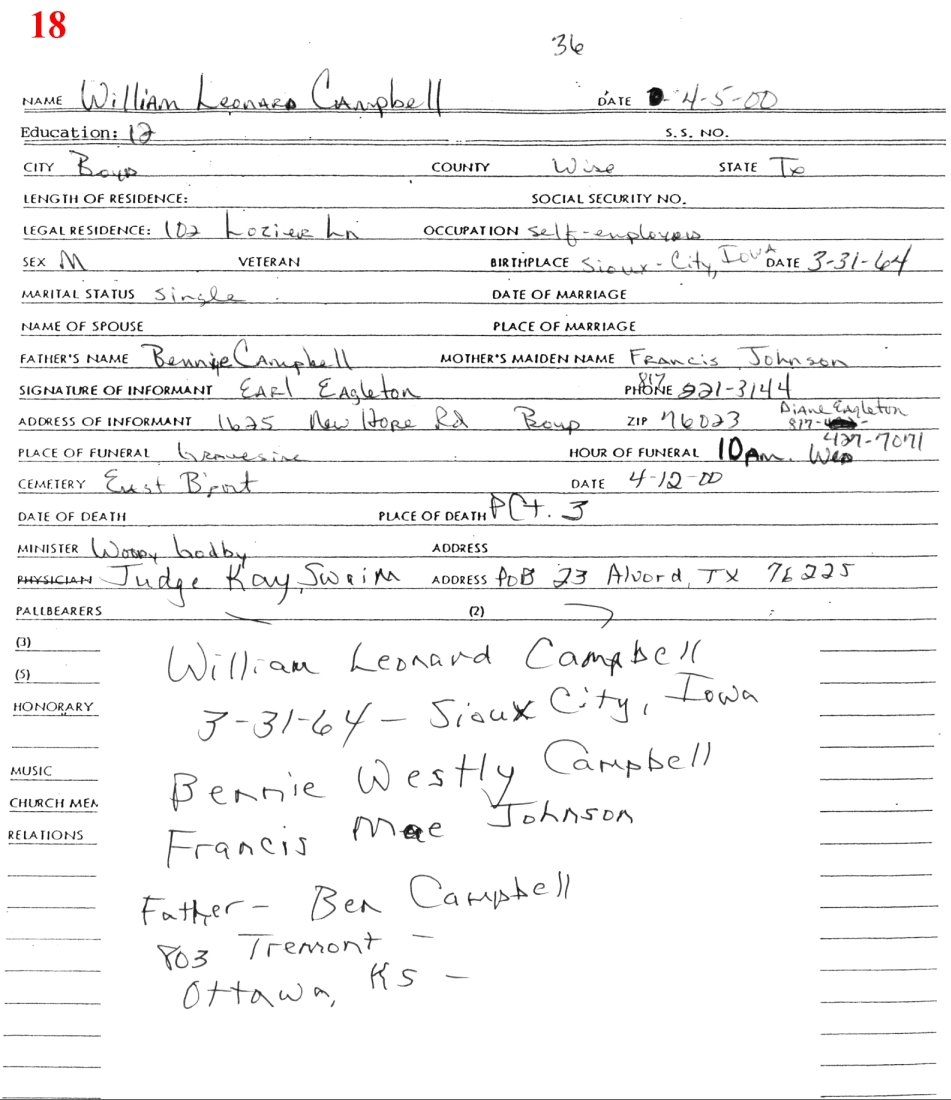 18
36
NAME William Leonard Campbell DATE D- 4-5-00
Education: 12 S.S. NO.
CITY Boyd COUNTY Wise STATE Tx
LENGTH OF RESIDENCE: SOCIAL SECURITY NO.
LEGAL RESIDENCE: 102 Lozier Ln OCCUPATION self-employed
SEX M VETERAN BIRTHPLACE Sioux-City, Iowa DATE 3-31-64
MARITAL STATUS Single DATE OF MARRIAGE
NAME OF SPOUSE PLACE OF MARRIAGE
FATHER'S NAME Bennie Campbell MOTHER'S MAIDEN NAME Francis Johnson
SIGNATURE OF INFORMANT Earl Eagleton PHONE 817 221-3144
ADDRESS OF INFORMANT 1625 New Hope Rd Boyd ZIP 76023 Diane Eagleton
817-
427-7071
PLACE OF FUNERAL Graveside HOUR OF FUNERAL 10 Am. Wed
CEMETERY East B'port DATE 4-12-00
DATE OF DEATH PLACE OF DEATH PCt. 3
MINISTER Woody Godby ADDRESS
PHYSICIAN Judge Kay Swaim ADDRESS POB 23 Alvord, TX 76225
PALLBEARERS (2)
(3)
(5)
HONORARY
MUSIC
CHURCH MEM
RELATIONS
William Leonard Campbell
3-31-64 - Sioux City, Iowa
Bennie Westly Campbell
Francis Mae Johnson
Father- Ben Campbell
803 Tremont -
Ottawa, KS -